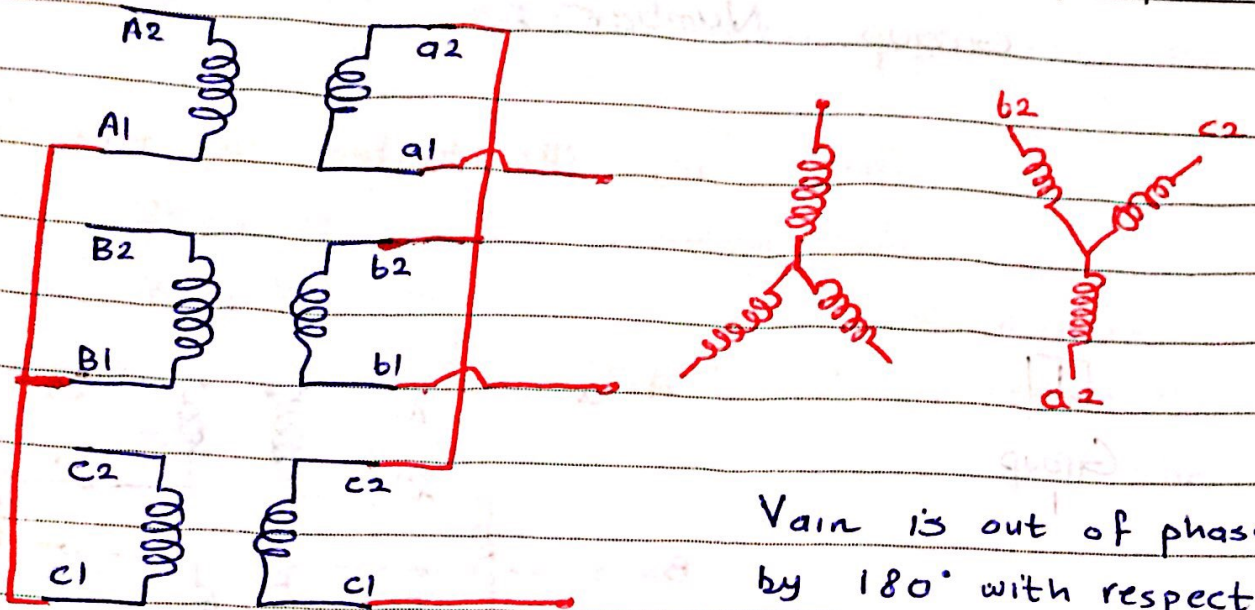 A2
a2
A1
a1
B2
b2
B1
b1
C2
c2
C1
c1
b2
c2
a2
Vain is out of phas
by 180° with respect